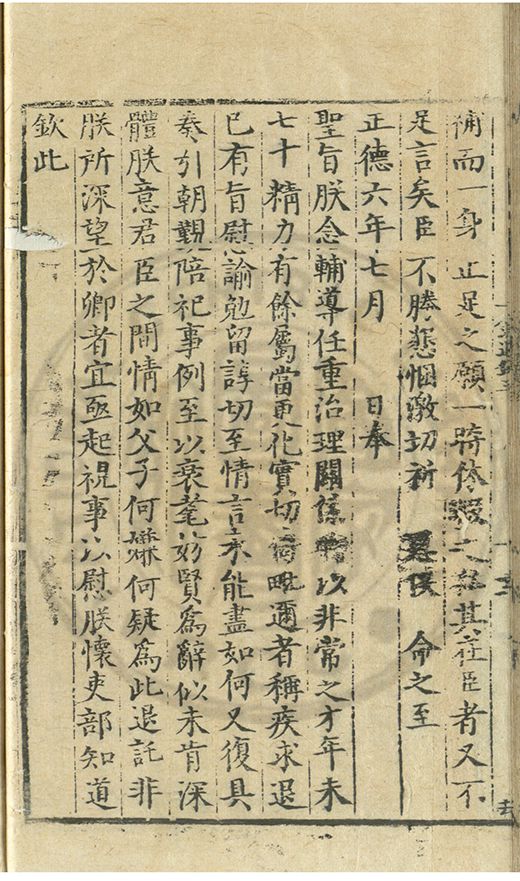 補而一身止足之願一時休致之其在臣者又不
足言矣臣不勝悲悃激切祈 懇俟 命之至
正德六年七月 日奉
聖旨朕念輔導任重治理關係 以非常之才年未
七十精力有餘屬當更化實切 毗邇者稱疾求退
已有旨慰諭勉留諄切至情言未能盡如何又復具
奏引朝覲陪祀事例至以衰耄妨賢為辭似未肯深
體朕意君臣之間情如父子何嫌何疑為此退託非
朕所深望於卿者宜亟起視事以慰朕懷吏部知道
欽此